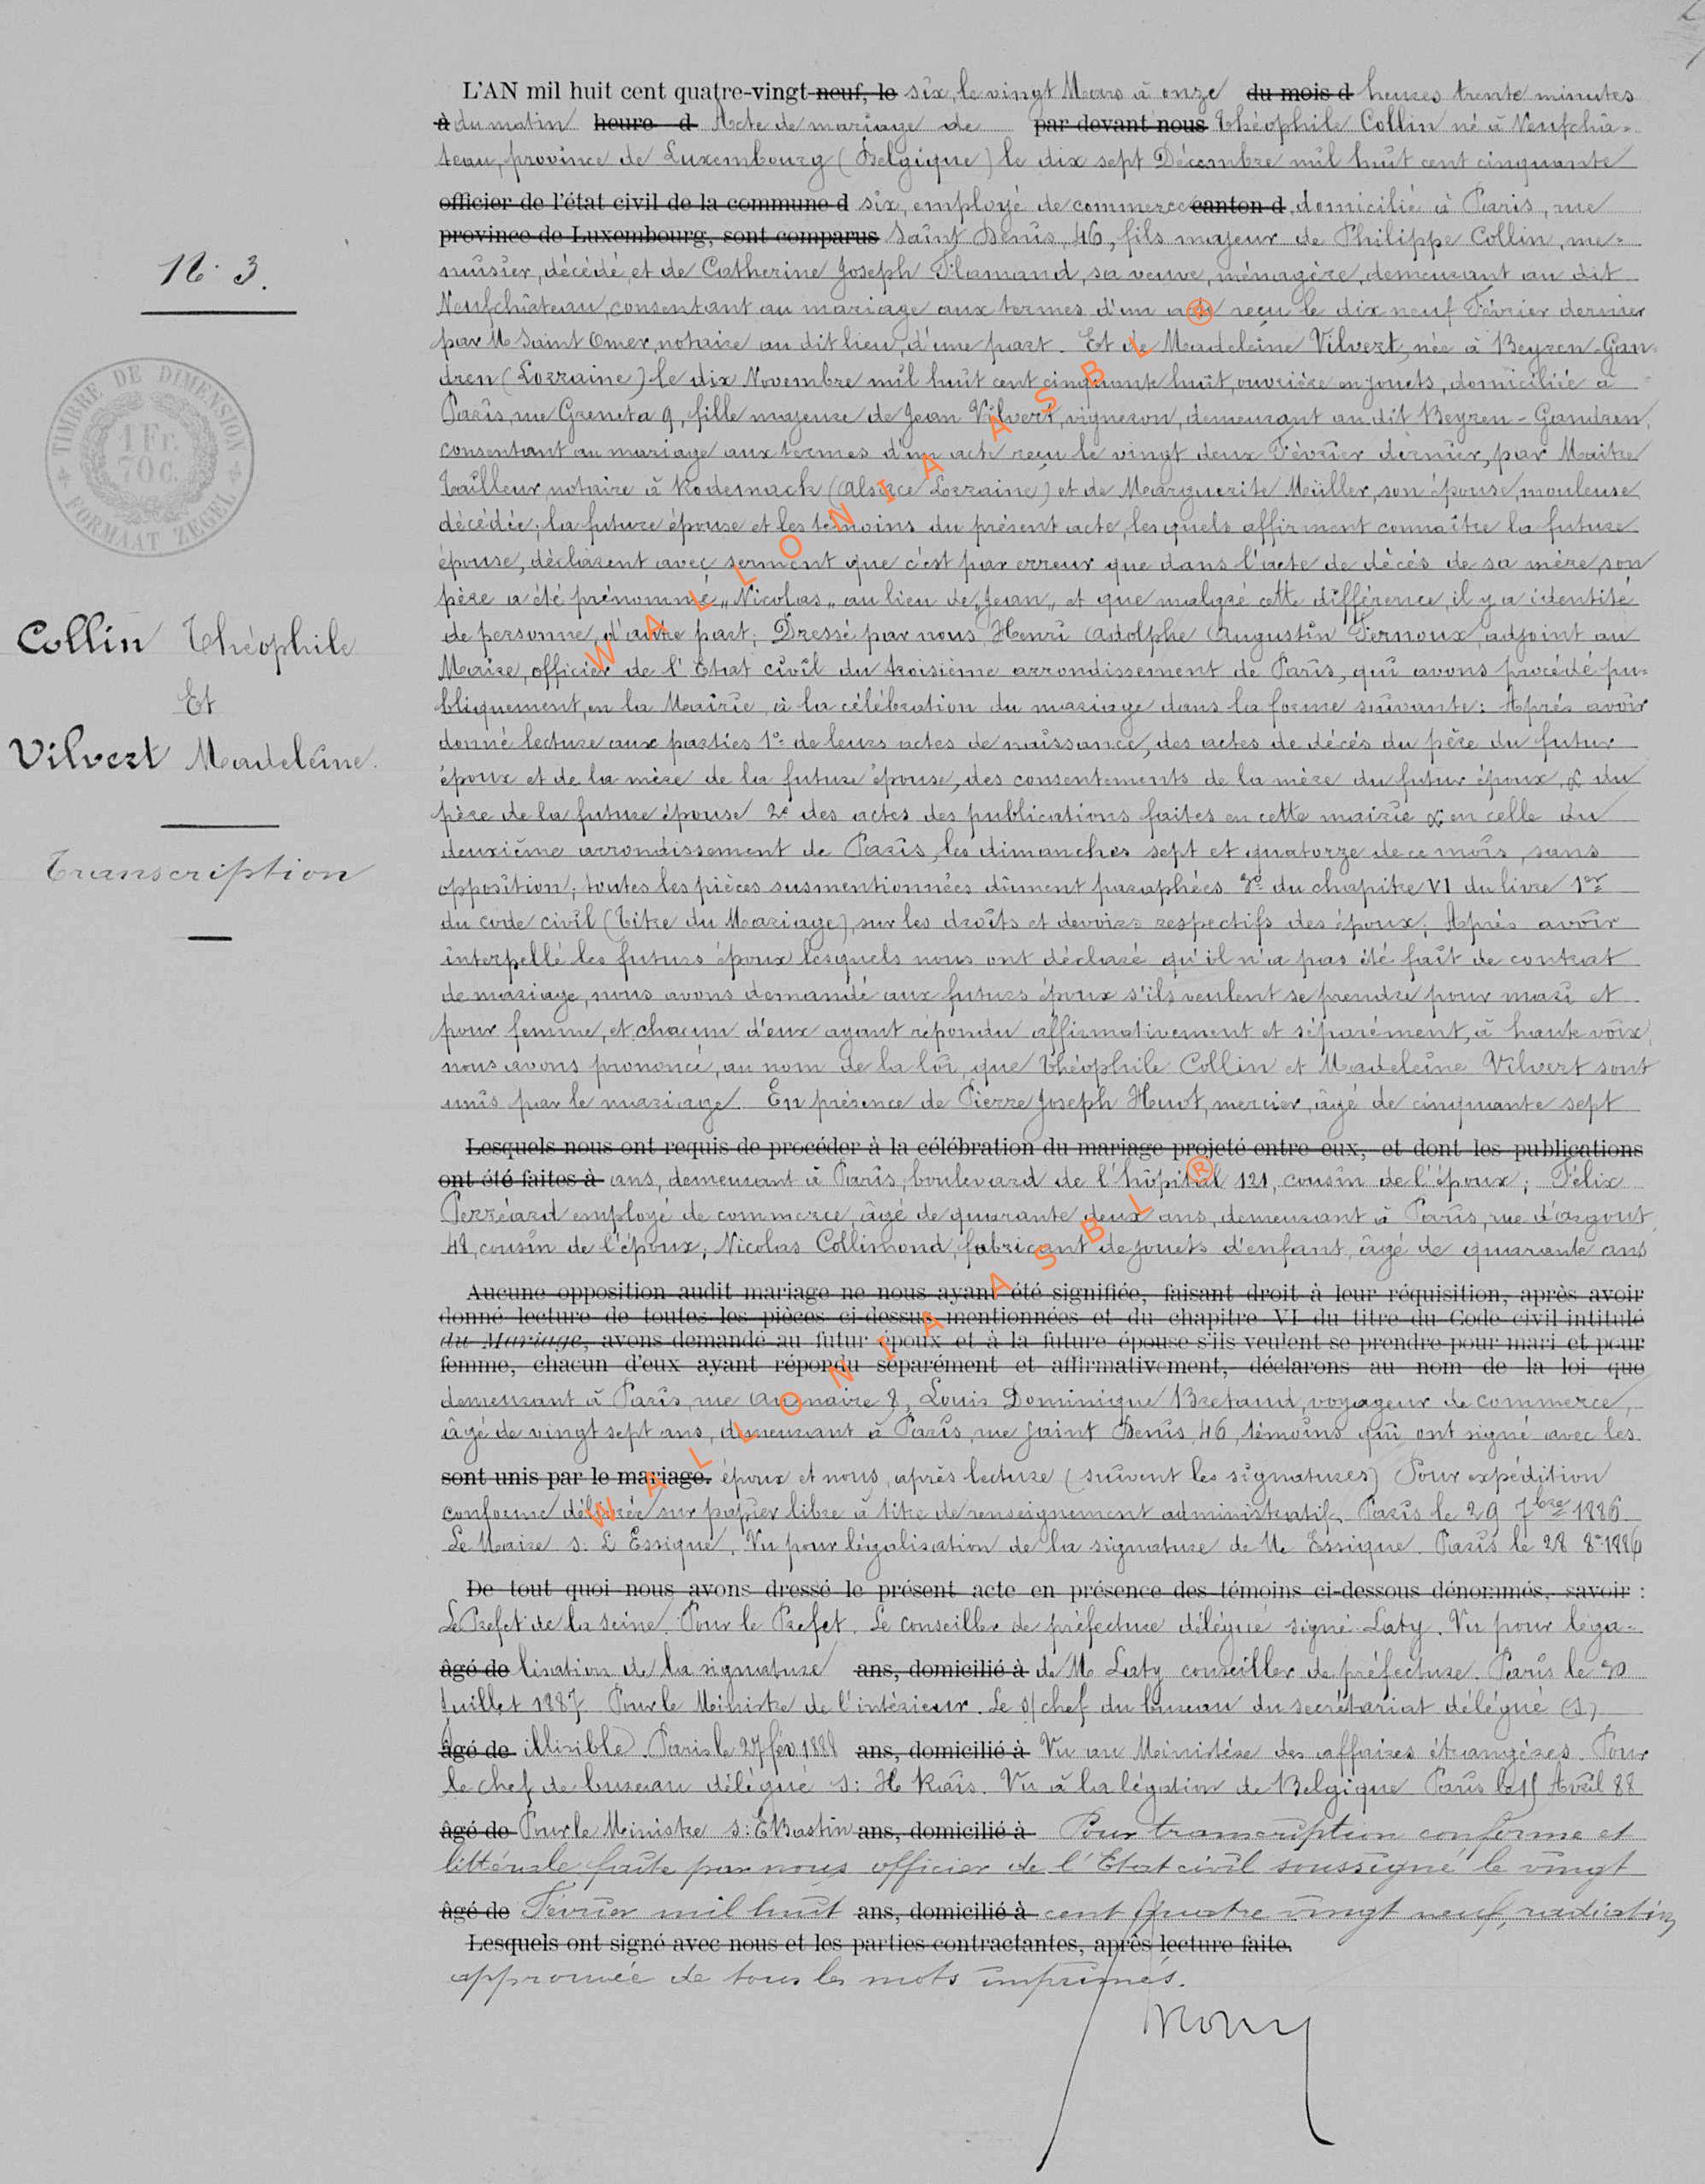 N° 3.
TIMBRE DE DIMENSION
1 Fr.
70 C.
FORMAAT ZEGEL
Collin Théophile
Et
Vilvert Madeleine.
Transcription
L'AN mil huit cent quatre-vingt neuf, le six, le vingt Mars à onze du mois d heures trente minutes
à du matin heure d Acte de mariage de par devant nous Théophile Collin né à Neufchâ-
teau, province de Luxembourg (Belgique) le dix sept Décembre mil huit cent cinquante
officier de l'état civil de la commune d six, employé de commerce canton d, domicilié à Paris, rue
province de Luxembourg, sont comparus Saint Denis, 46, fils majeur de Philippe Collin, me-
nuisier, décédé et de Catherine Joseph Flamand, sa veuve, ménagère, demeurant au dit
Neufchâteau, consentant au mariage aux termes d'un acte reçu le dix neuf Février dernier
par M Saint Omer, notaire au dit lieu, d'une part. Et de Madeleine Vilvert, née à Beyren-Gan-
dren (Lorraine) le dix Novembre mil huit cent cinquante huit, ouvrière en jouets, domiciliée à
Paris, rue Greneta 9, fille majeure de Jean Vilvert, vigneron, demeurant au dit Beyren-Gandren,
consentant au mariage aux termes d'un acte reçu le vingt deux Février dernier, par Maître
Tailleur, notaire à Rodemack (Alsace Lorraine) et de Marguerite Müller, son épouse, mouleuse,
décédée; la future épouse et les témoins du présent acte, lesquels affirment connaître la future
épouse, déclarent avec serment que c'est par erreur que dans l'acte de décès de sa mère, son
père a été prénommé „Nicolas„ au lieu de „Jean„ et que malgré cette différence, il y a identité
de personne, d'autre part; Dressé par nous Henri Adolphe Augustin Fernoux, adjoint au
Maire, officier de l'Etat civil du troisième arrondissement de Paris, qui avons procédé pu-
bliquement, en la Mairie, à la célébration du mariage dans la forme suivante: Après avoir
donné lecture aux parties 1° de leurs actes de naissance, des actes de décès du père du futur
époux et de la mère de la future épouse, des consentements de la mère du futur époux, & du
père de la future épouse 2° des actes des publications faites en cette mairie & en celle du
deuxième arrondissement de Paris, les dimanches sept et quatorze de ce mois, sans
opposition; toutes les pièces susmentionnées dûment paraphées 3° du chapitre VI du livre 1er
du code civil (Titre du Mariage), sur les droits et devoirs respectifs des époux; Après avoir
interpellé les futurs époux lesquels nous ont déclaré qu'il n'a pas été fait de contrat
de mariage, nous avons demandé aux futurs époux s'ils veulent se prendre pour mari et
pour femme, et chacun d'eux ayant répondu affirmativement et séparément, à haute voix,
nous avons prononcé, au nom de la loi, que Théophile Collin et Madeleine Vilvert sont
unis par le mariage. En présence de Pierre Joseph Huot, mercier, âgé de cinquante sept
Lesquels nous ont requis de procéder à la célébration du mariage projeté entre eux, et dont les publications
ont été faites à ans, demeurant à Paris, boulevard de l'hôpital 121, cousin de l'époux; Félix
Perréard employé de commerce, âgé de quarante deux ans, demeurant à Paris, rue d'argout
48, cousin de l'époux; Nicolas Collimond, fabricant de jouets d'enfant, âgé de quarante ans
Aucune opposition audit mariage ne nous ayant été signifiée, faisant droit à leur réquisition, après avoir
donné lecture de toutes les pièces ci-dessus mentionnées et du chapitre VI du titre du Code civil intitulé
du Mariage, avons demandé au futur époux et à la future épouse s'ils veulent se prendre pour mari et pour
femme, chacun d'eux ayant répondu séparément et affirmativement, déclarons au nom de la loi que
demeurant à Paris, rue Aumaire 8, Louis Dominique Bretaud, voyageur de commerce,
âgé de vingt sept ans, demeurant à Paris, rue Saint Denis, 46, témoins qui ont signé avec les
sont unis par le mariage. époux et nous, après lecture (suivent les signatures) Pour expédition
conforme délivrée sur papier libre à titre de renseignement administratif. Paris le 29 7bre 1886.
Le Maire s: L Essique. Vu pour légalisation de la signature de M Essique. Paris le 28 8re 1886
De tout quoi nous avons dressé le présent acte en présence des témoins ci-dessous dénommés, savoir :
Le Préfet de la Seine. Pour le Préfet. Le conseiller de préfecture délégué signé Laty. Vu pour léga-
âgé de lisation de la signature ans, domicilié à de M Laty conseiller de préfecture. Paris le 30
Juillet 1887. Pour le Ministre de l'intérieur. Le s/chef du bureau du secrétariat délégué (s)
âgé de illisible. Paris le 27 fév 1888 ans, domicilié à Vu au Ministère des affaires étrangères. Pour
le chef de bureau délégué s: H Rais. Vu à la légation de Belgique Paris le 11 Avril 88
âgé de Pour le Ministre s: E Bastin ans, domicilié à Pour transcription conforme et
littérale faite par nous officier de l'Etat civil soussigné le vingt
âgé de Février mil huit ans, domicilié à cent quatre vingt neuf, radiation
Lesquels ont signé avec nous et les parties contractantes, après lecture faite.
approuvée de tous les mots imprimés.
WALLONIA ASBL ®
WALLONIA ASBL ®